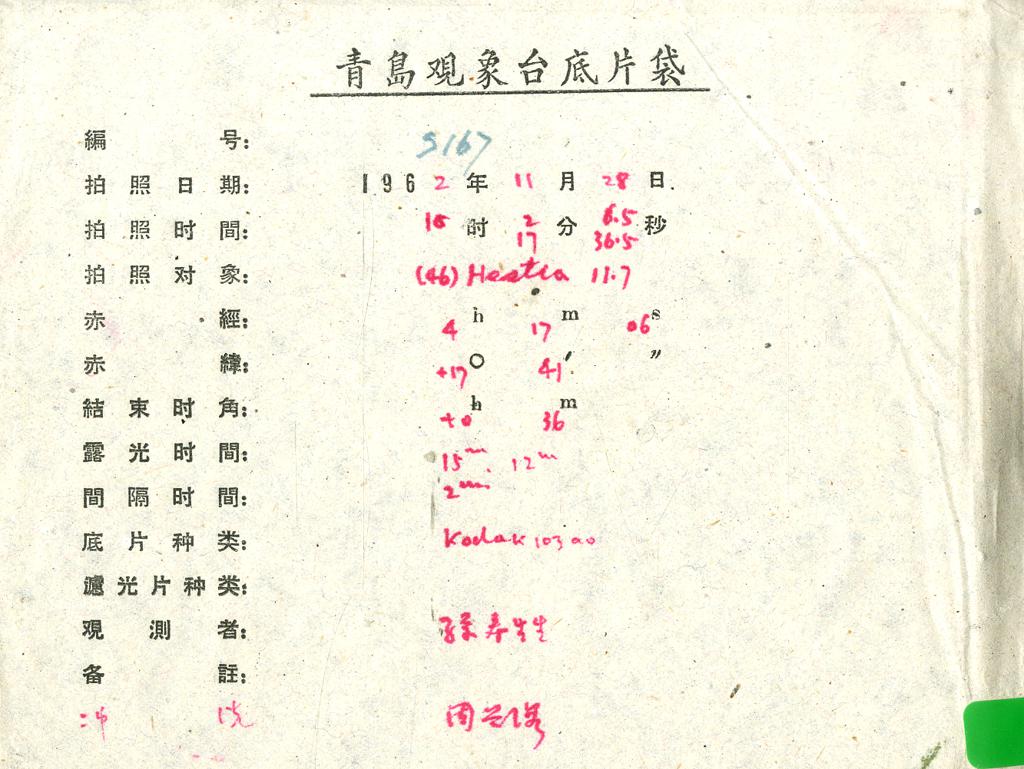 青島观象台底片袋
编号: S167
拍照日期: 1962年11月28日.
拍照时間: 16时2分6.5秒
17 36.5
拍照对象: (46) Hestia 11.7
赤經: 4h 17m 06s
赤緯: +17° 41′ ″
結束时角: +0h 36m
露光时間: 15m. 12m
間隔时間: 2m
底片种类: Kodak 103aO
濾光片种类:
观測者: 孫寿
备註:
冲洗 周